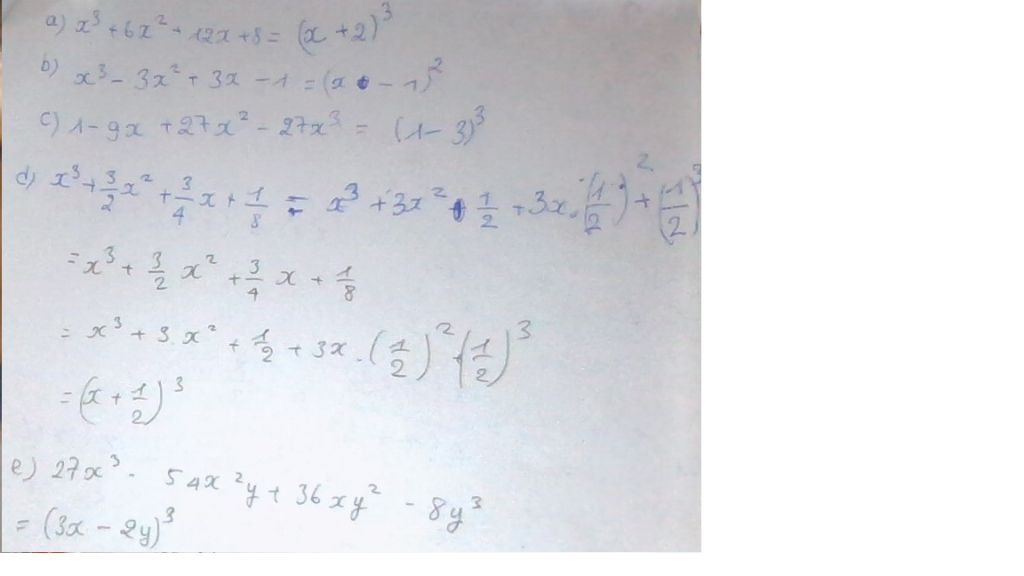 a) x³ + 6x² + 12x + 8 = (x + 2)³
b) x³ - 3x² + 3x - 1 = (x - 1)²
c) 1 - 9x + 27x² - 27x³ = (1 - 3)³
d) x³ + 3/2 x² + 3/4 x + 1/8 = x³ + 3x² · 1/2 + 3x · (1/2)² + (1/2)³
= x³ + 3/2 x² + 3/4 x + 1/8
= x³ + 3 x² + 1/2 + 3x . (1/2)² + (1/2)³
= (x + 1/2)³
e) 27x³ - 54x²y + 36xy² - 8y³
= (3x - 2y)³